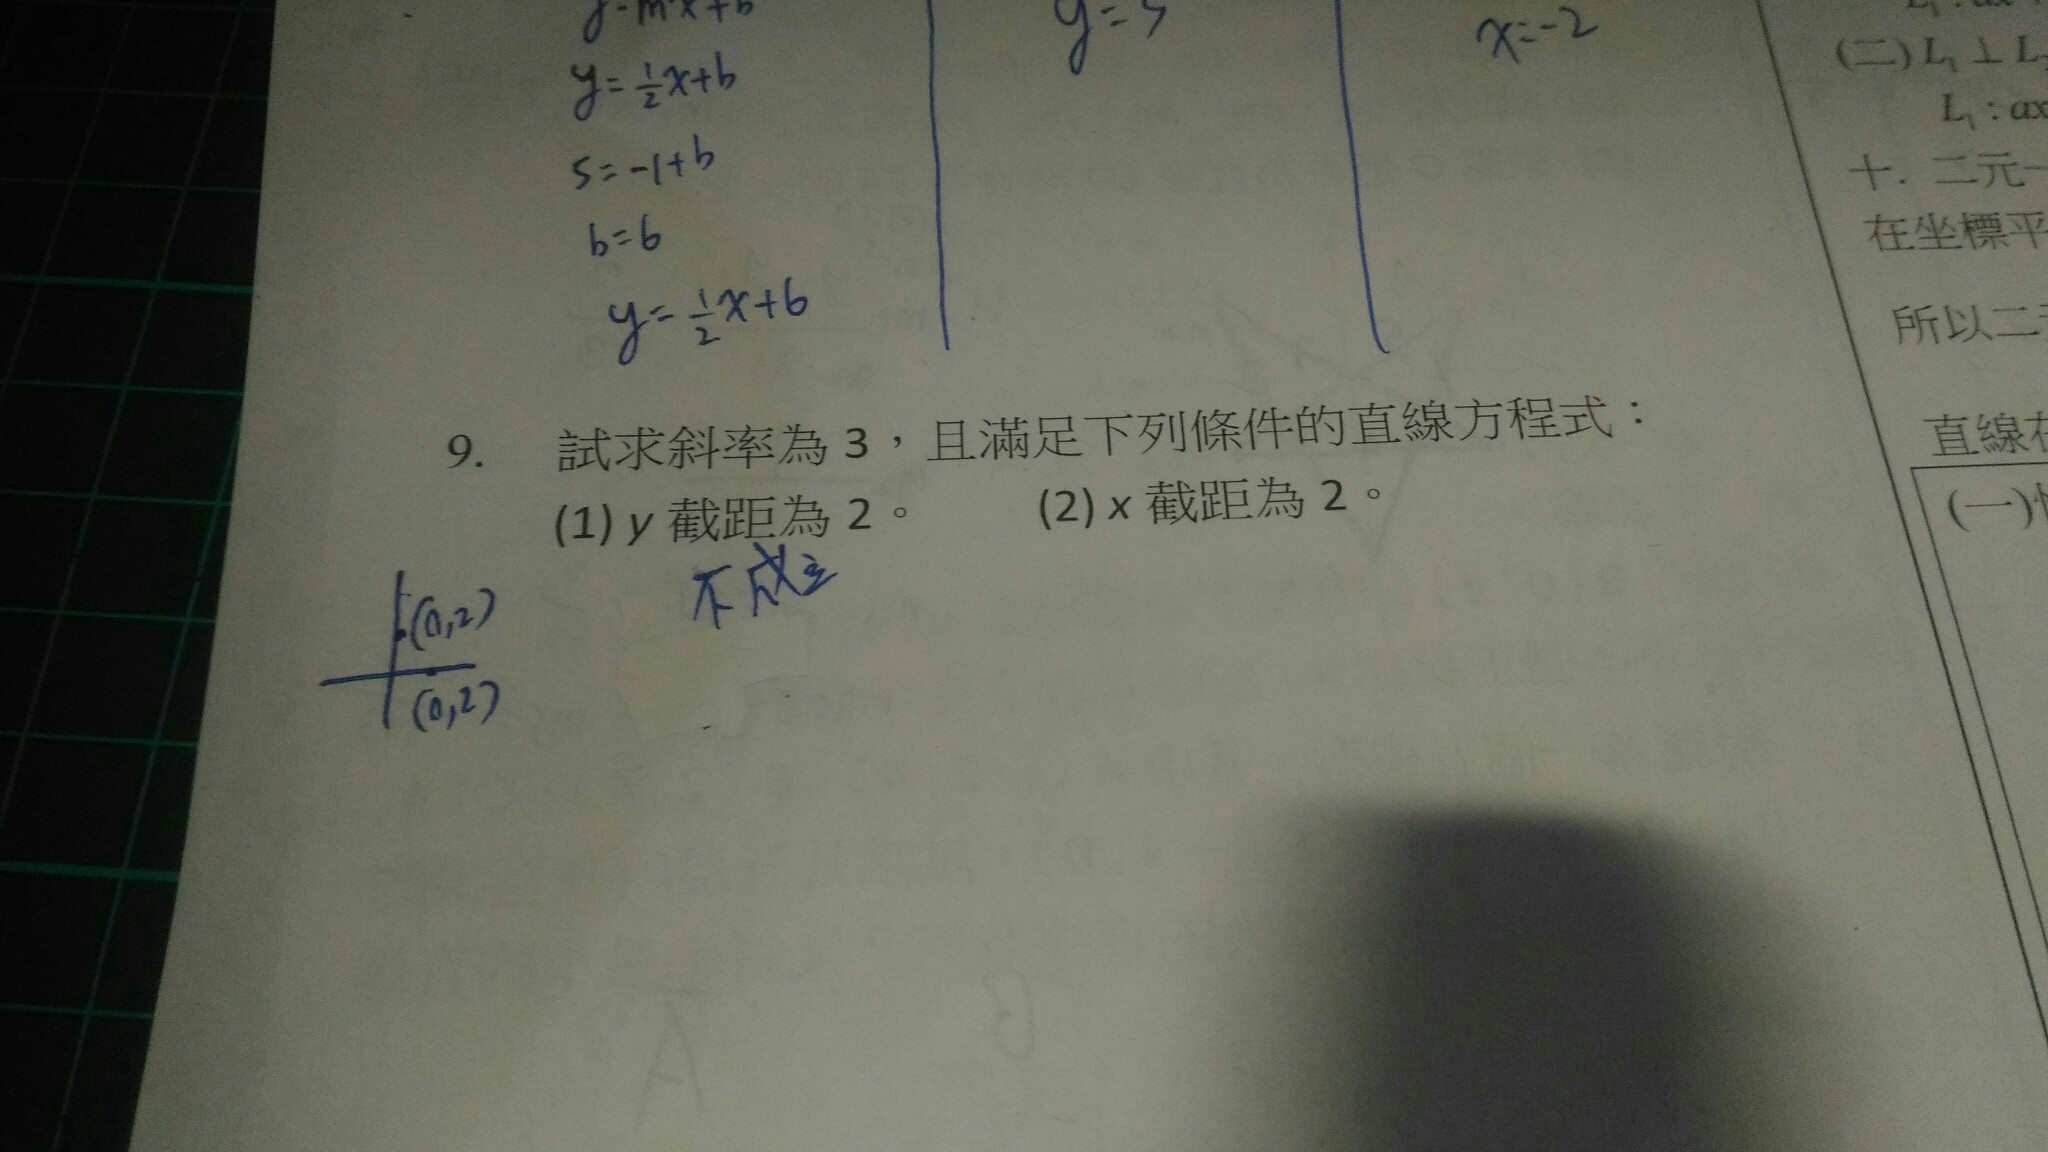 y=m·x+b
y=½x+b
5=-1+b
b=6
y=½x+6
y=5
x=-2
9. 試求斜率為3，且滿足下列條件的直線方程式：
(1) y 截距為 2。 (2) x 截距為 2。
不成立
(0,2)
(0,2)
(二) L₁ ⊥ L₂
L₁ : ax
十. 二元一
在坐標平
所以二
直線在
(一)
B
A